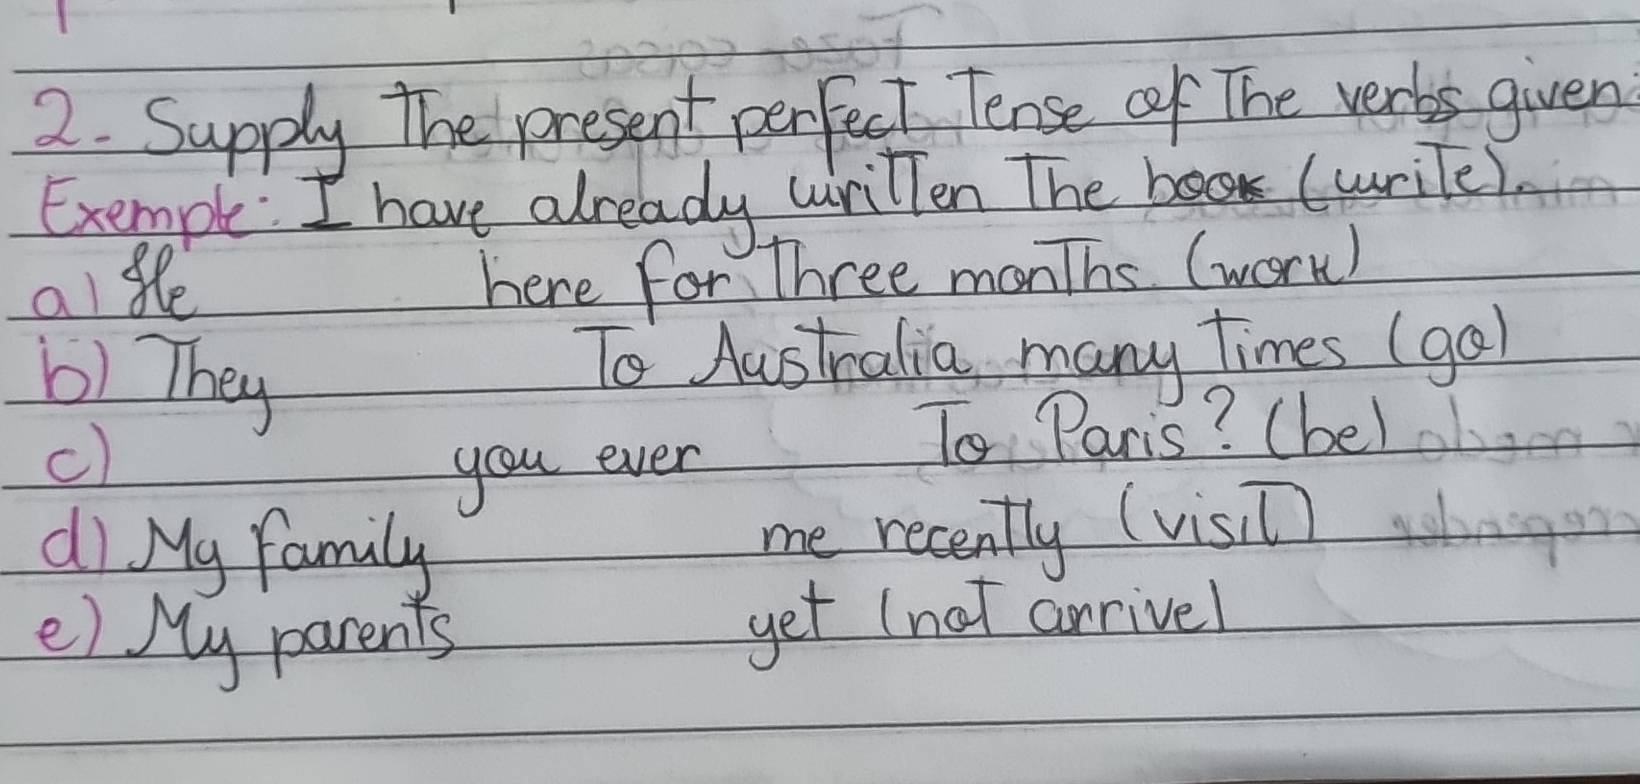 2- Supply The present perfect Tense of The verbs given:
Exemple: I have already written The book (write).
a) He here for Three months (work)
b) They To Australia many Times (go)
c) you ever To Paris? (be)
d) My family me recently (visit)
e) My parents yet (not arrive)